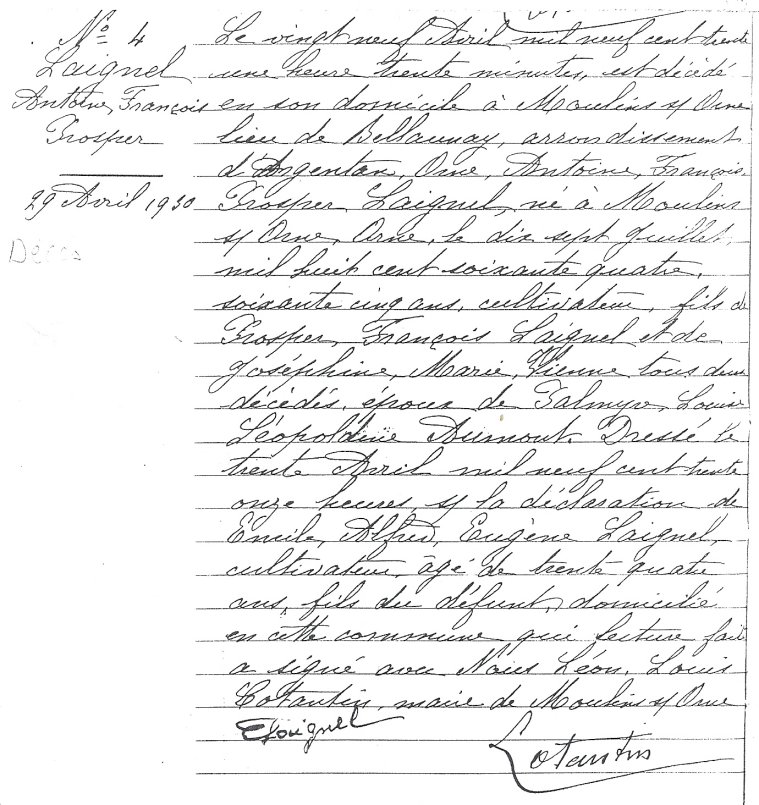 N° 4
Laignel
Antoine, François
Prosper
29 Avril 1930
Décès
Le vingt neuf Avril mil neuf cent trente
une heure trente minutes, est décédé
en son domicile à Moulins s/ Orne
lieu de Bellaunay, arrondissement
d'Argentan, Orne, Antoine, François,
Prosper Laignel, né à Moulins
s/ Orne, Orne, le dix sept Juillet,
mil huit cent soixante quatre,
soixante cinq ans, cultivateur, fils de
Prosper, François Laignel et de
Joséphine, Marie, Vienne tous deux
décédés, époux de Palmyre, Louise
Léopoldine Aumont. Dressé le
trente Avril mil neuf cent trente
onze heures, s/ la déclaration de
Emile, Alfred, Eugène Laignel,
cultivateur, âgé de trente quatre
ans, fils du défunt, domicilié
en cette commune qui lecture faite
a signé avec Nous Léon, Louis
Cotantin, maire de Moulins s/ Orne
E Laignel
Cotantin